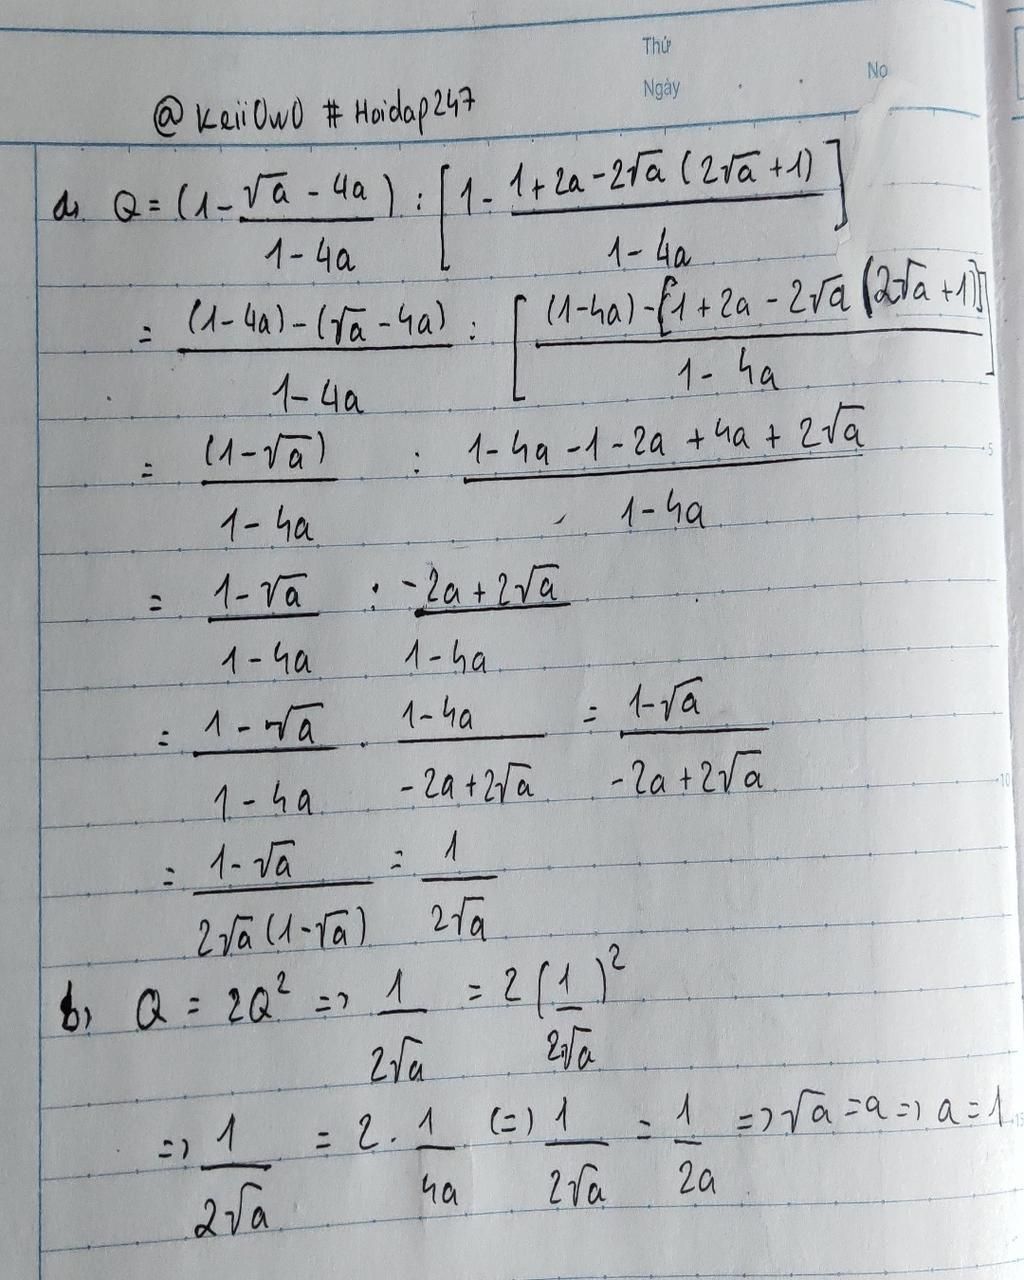 Thứ
No
Ngày
@KeiiOwO #Hoidap247
a, Q = (1 - \frac{√a - 4a}{1 - 4a}) : [1 - \frac{1 + 2a - 2√a (2√a + 1)}{1 - 4a}]
= \frac{(1 - 4a) - (√a - 4a)}{1 - 4a} : [\frac{(1 - 4a) - [1 + 2a - 2√a (2√a + 1)]}{1 - 4a}]
= \frac{(1 - √a)}{1 - 4a} : \frac{1 - 4a - 1 - 2a + 4a + 2√a}{1 - 4a}
5
= \frac{1 - √a}{1 - 4a} : \frac{-2a + 2√a}{1 - 4a}
= \frac{1 - √a}{1 - 4a} . \frac{1 - 4a}{-2a + 2√a} = \frac{1 - √a}{-2a + 2√a}
10
= \frac{1 - √a}{2√a (1 - √a)} = \frac{1}{2√a}
b, Q = 2Q² => \frac{1}{2√a} = 2 (\frac{1}{2√a})²
=> \frac{1}{2√a} = 2 . \frac{1}{4a} (=) \frac{1}{2√a} = \frac{1}{2a} => √a = a => a = 1
15